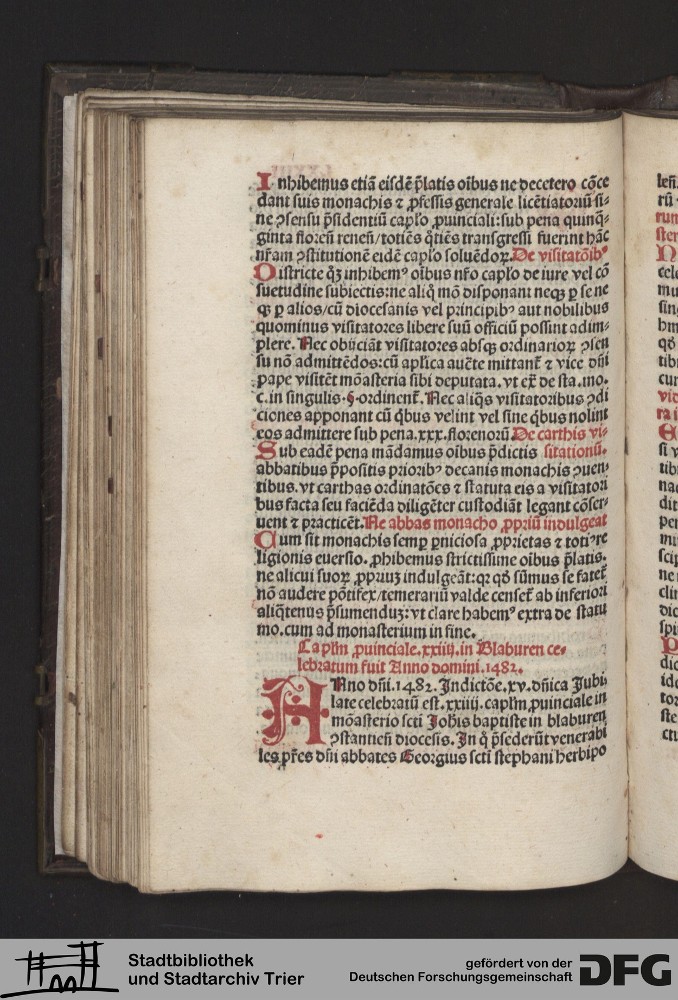 Inhibemus etiā eisdē p̄latis oībus ne decetero cōce
dant suis monachis ⁊ ꝓfessis generale licētiatoriū si-
ne ꝯsensu p̄sidentiū capl̓o ꝓuinciali: sub pena quinq̄-
ginta florēn renen̄/totiēs q̊tiēs transgressi fuerint hāc
nr̄am ꝯstitutionē eidē capl̓o soluēdoꝝ. De visitatōibꝰ
Districte qꝫ inhibemꝰ oībus nr̄o capl̓o de iure vel cō
suetudine subiectis: ne aliq̊ mō disponant neqꝫ ꝑ se ne
qꝫ ꝑ alios/cū diocesanis vel principibꝰ aut nobilibus
quominus visitatores libere suū officiū possint adim-
plere. Nec obijciāt visitatores absqꝫ ordinarioꝝ ꝯsen
su nō admittēdos: cū apl̓ica auc̄te mittant̄ ⁊ vice dn̄i
pape visitēt mōasteria sibi deputata. vt ex̄ de sta. mo.
c. in singulis. §. ordinent̄. Nec aliq̊s visitatoribus ꝯdi
ciones apponant cū q̊bus velint vel sine q̊bus nolint
eos admittere sub pena. xxx. florenorū De carthis vi-
Sub eadē pena mādamus oībus p̄dictis sitationū.
abbatibus p̄positis prioribꝰ decanis monachis ꝯuen-
tibus. vt carthas ordinatōes ⁊ statuta eis a visitatori
bus facta seu faciēda diligēter custodiāt legant cōser-
uent ⁊ practicēt. Ne abbas monacho ꝓpriū indulgeat
Cum sit monachis semꝑ ꝑniciosa ꝓprietas ⁊ totiꝰ re
ligionis euersio. ꝓhibemus strictissime oībus p̄latis.
ne alicui suoꝝ ꝓpriuꝫ indulgeāt: qꝛ qd̓ sūmus se fatet̄
nō audere pōtifex/temerariū valde censet̄ ab inferiori
aliq̊tenus p̄sumenduꝫ: vt clare habemꝰ extra de statu
mo. cum ad monasterium in fine.
Capl̓m ꝓuinciale. xxiiij. in Blaburen ce-
lebratum fuit Anno domini. 1482.
ANno dn̄i. 1482. Indictōe. xv. dn̄ica Jubi
late celebratū est. xxiiij. capl̓m ꝓuinciale in
mōasterio scti Joh̄is baptiste in blaburen
ꝯstantien̄ diocesis. In q̊ p̄sederūt venerabi
les pr̄es dn̄i abbates Georgius scti stephani herbipo
Stadtbibliothek
und Stadtarchiv Trier
gefördert von der
Deutschen Forschungsgemeinschaft
DFG